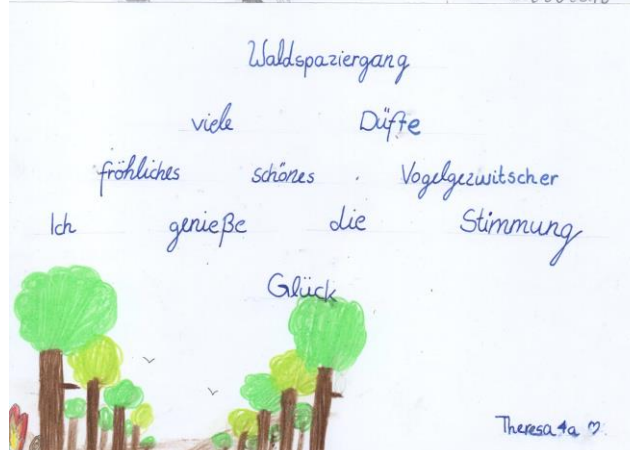 Waldspaziergang
viele Düfte
fröhliches schönes Vogelgezwitscher
Ich genieße die Stimmung
Glück
Theresa 4a ♡